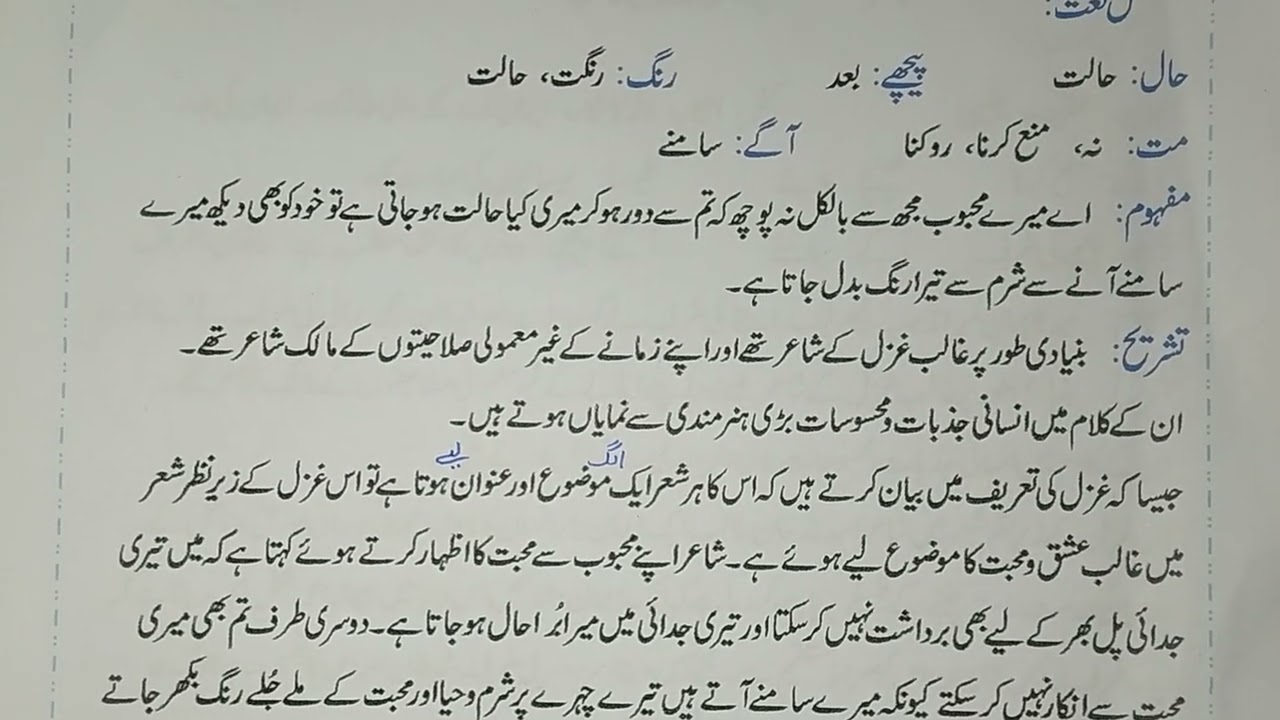 حال: حالت پیچھے: بعد رنگ: رنگت، حالت
مت: نہ، منع کرنا، روکنا آگے: سامنے
مفہوم: اے میرے محبوب مجھ سے بالکل نہ پوچھ کہ تم سے دور ہو کر میری کیا حالت ہو جاتی ہے تو خود کو بھی دیکھ میرے
سامنے آنے سے شرم سے تیرا رنگ بدل جاتا ہے۔
تشریح: بنیادی طور پر غالب غزل کے شاعر تھے اور اپنے زمانے کے غیر معمولی صلاحیتوں کے مالک شاعر تھے۔
ان کے کلام میں انسانی جذبات و محسوسات بڑی ہنر مندی سے نمایاں ہوتے ہیں۔
الگ لیے
جیسا کہ غزل کی تعریف میں بیان کرتے ہیں کہ اس کا ہر شعر ایک موضوع اور عنوان ہوتا ہے تو اس غزل کے زیر نظر شعر
میں غالب عشق و محبت کا موضوع لیے ہوئے ہے۔ شاعر اپنے محبوب سے محبت کا اظہار کرتے ہوئے کہتا ہے کہ میں تیری
جدائی پل بھر کے لیے بھی برداشت نہیں کر سکتا اور تیری جدائی میں میرا بُرا حال ہو جاتا ہے۔ دوسری طرف تم بھی میری
محبت سے انکار نہیں کر سکتے کیونکہ میرے سامنے آتے ہیں تیرے چہرے پر شرم و حیا اور محبت کے ملے جُلے رنگ بکھر جاتے